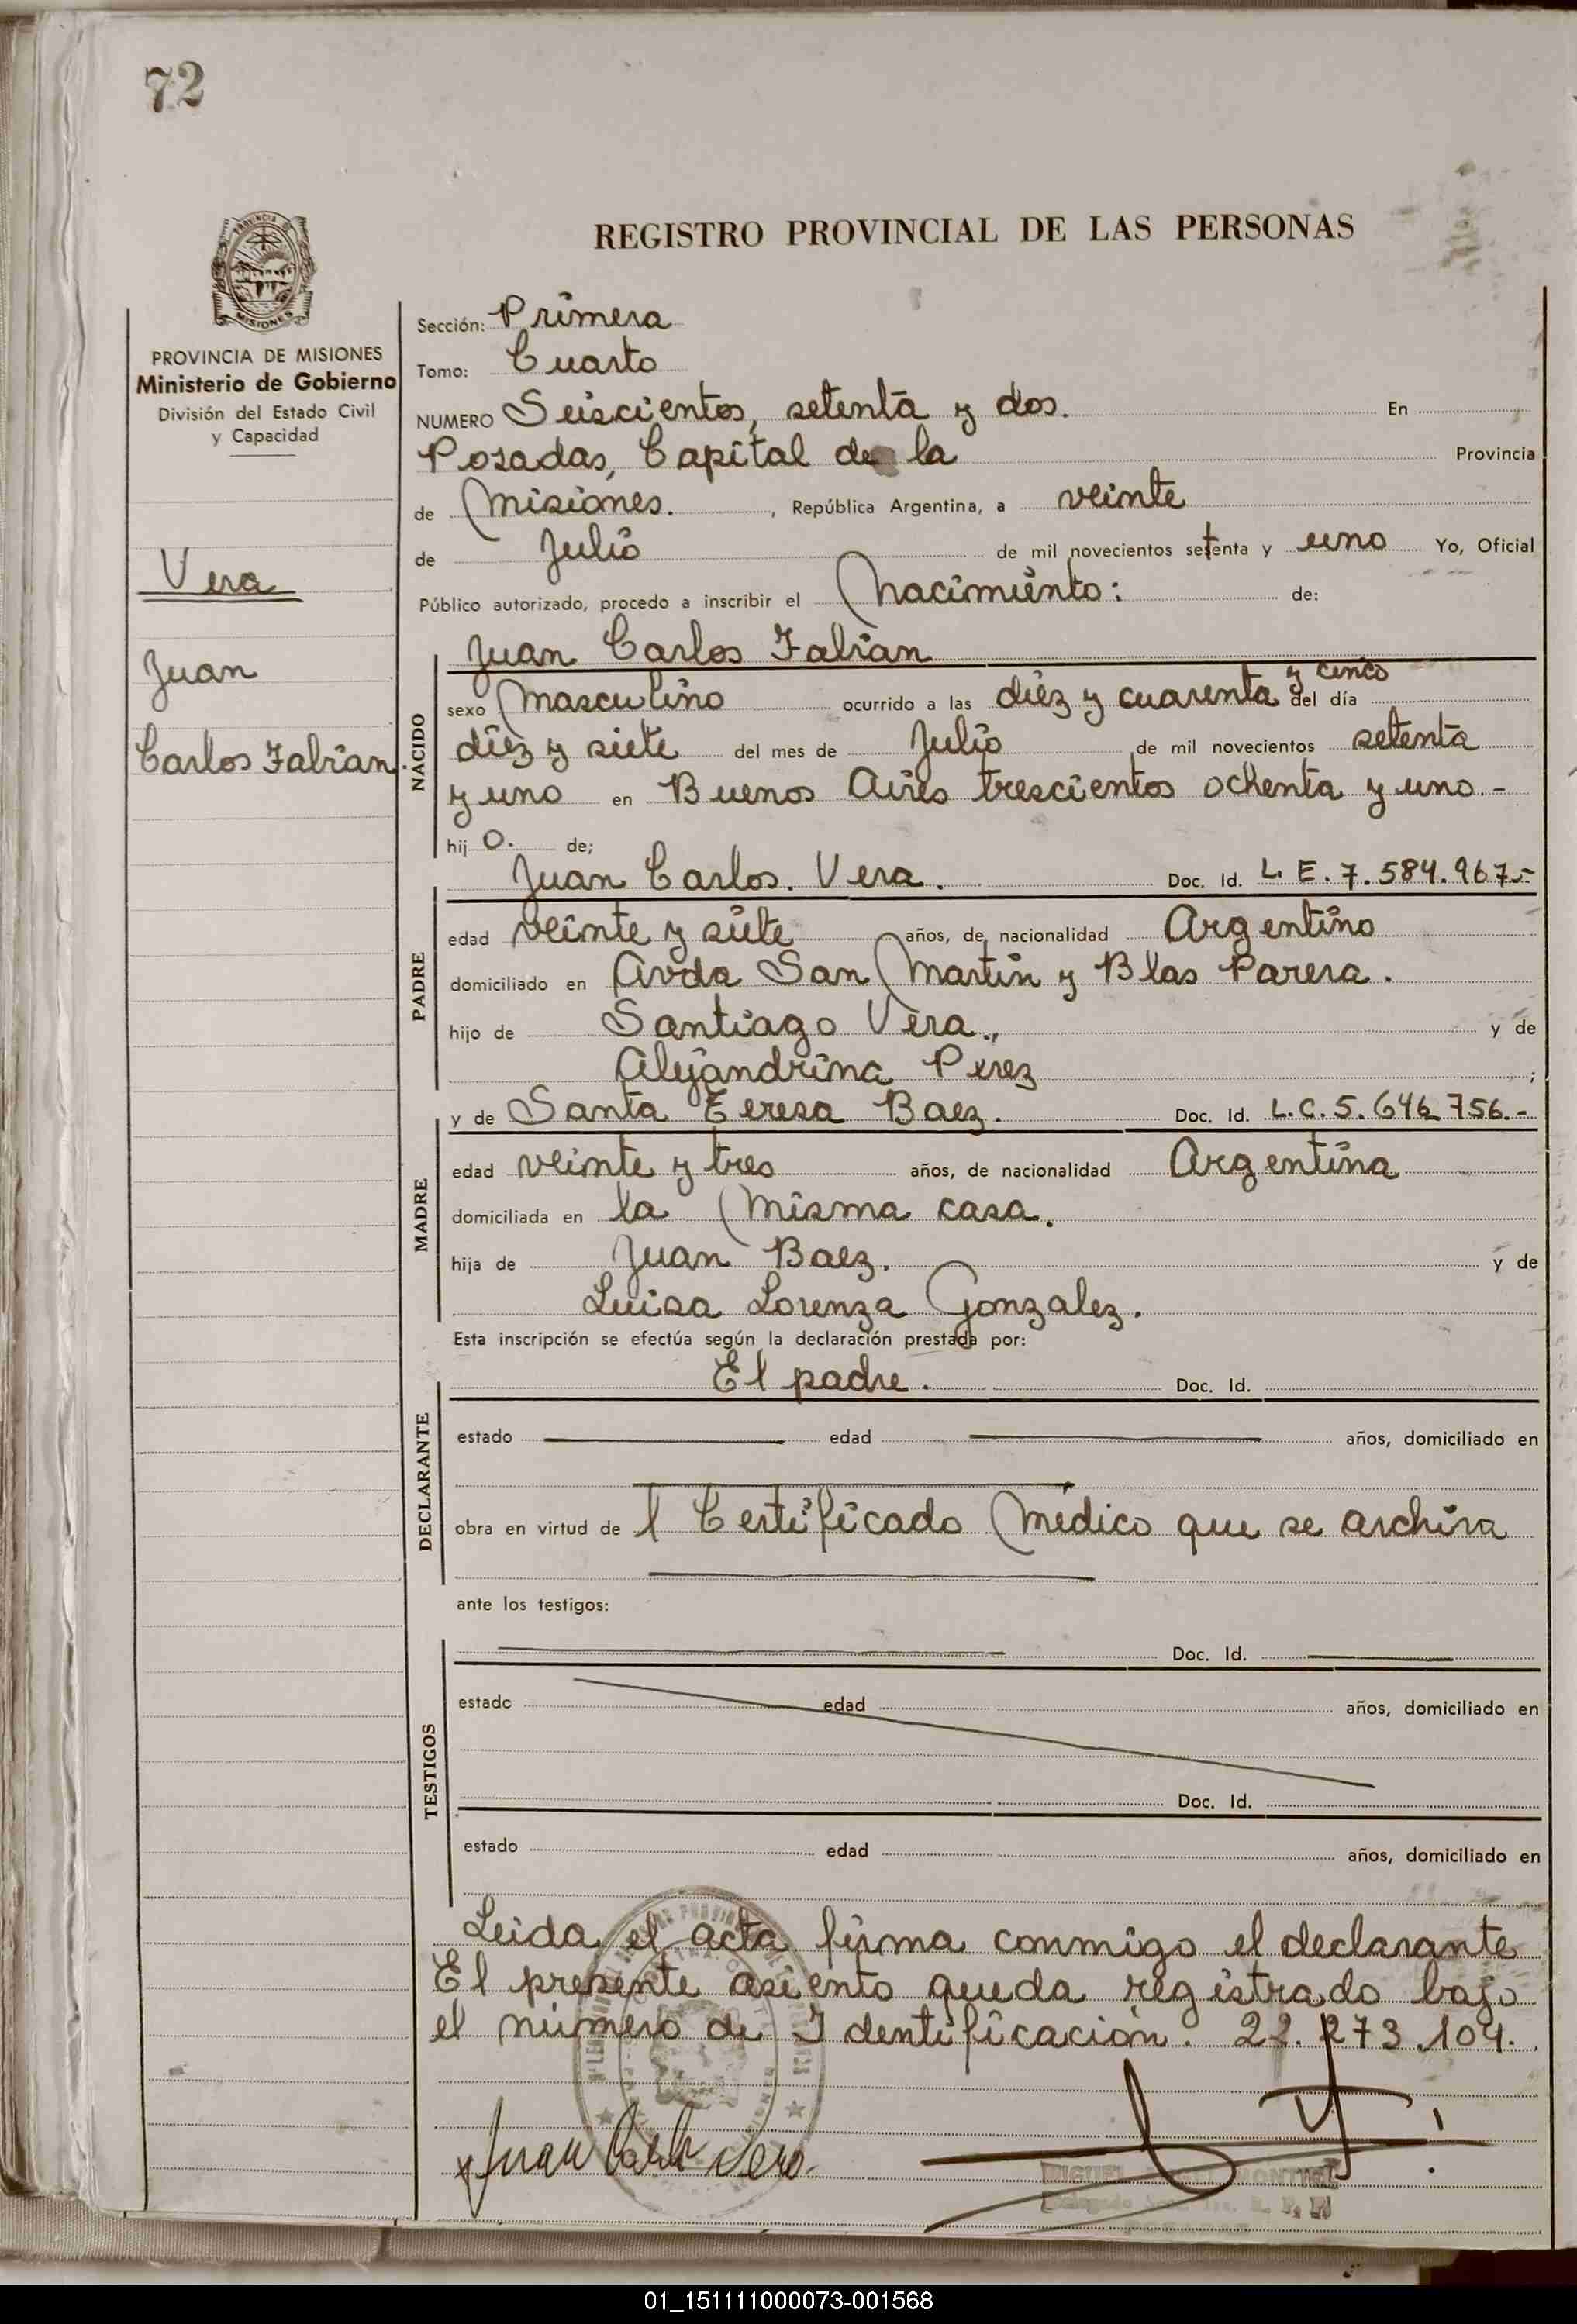 72
REGISTRO PROVINCIAL DE LAS PERSONAS
PROVINCIA
MISIONES
PROVINCIA DE MISIONES
Ministerio de Gobierno
División del Estado Civil
y Capacidad
Vera
Juan
Carlos Fabian
Sección: Primera
Tomo: Cuarto
NUMERO Seiscientos, setenta y dos. En
Posadas, Capital de la Provincia
de Misiones. , República Argentina, a veinte
de Julio de mil novecientos setenta y uno Yo, Oficial
Público autorizado, procedo a inscribir el Nacimiento: de:
NACIDO
Juan Carlos Fabian
y cinco
sexo Masculino ocurrido a las diez y cuarenta del día
diez y siete del mes de Julio de mil novecientos setenta
y uno en Buenos Aires trescientos ochenta y uno -
hij o. de;
PADRE
Juan Carlos. Vera. Doc. Id. L. E. 7. 584. 967.-
edad veinte y siete años, de nacionalidad Argentino
domiciliado en Avda San Martin y Blas Parera.
hijo de Santiago Vera., y de
Alejandrina Perez ;
MADRE
y de Santa Teresa Baez. Doc. Id. L.C. 5. 646 756.-
edad veinte y tres años, de nacionalidad Argentina
domiciliada en la Misma casa.
hija de Juan Baez. y de
Luisa Lorenza Gonzalez.
Esta inscripción se efectúa según la declaración prestada por:
DECLARANTE
El padre. Doc. Id.
estado edad años, domiciliado en
obra en virtud de l Certificado Médico que se archiva
ante los testigos:
TESTIGOS
Doc. Id.
estado edad años, domiciliado en
Doc. Id.
estado edad años, domiciliado en
Leida el acta firma conmigo el declarante
El presente asiento queda registrado bajo
el número de Identificación. 22. 273 .104.
Juan Carlos Vera.
MIGUEL
01_151111000073-001568